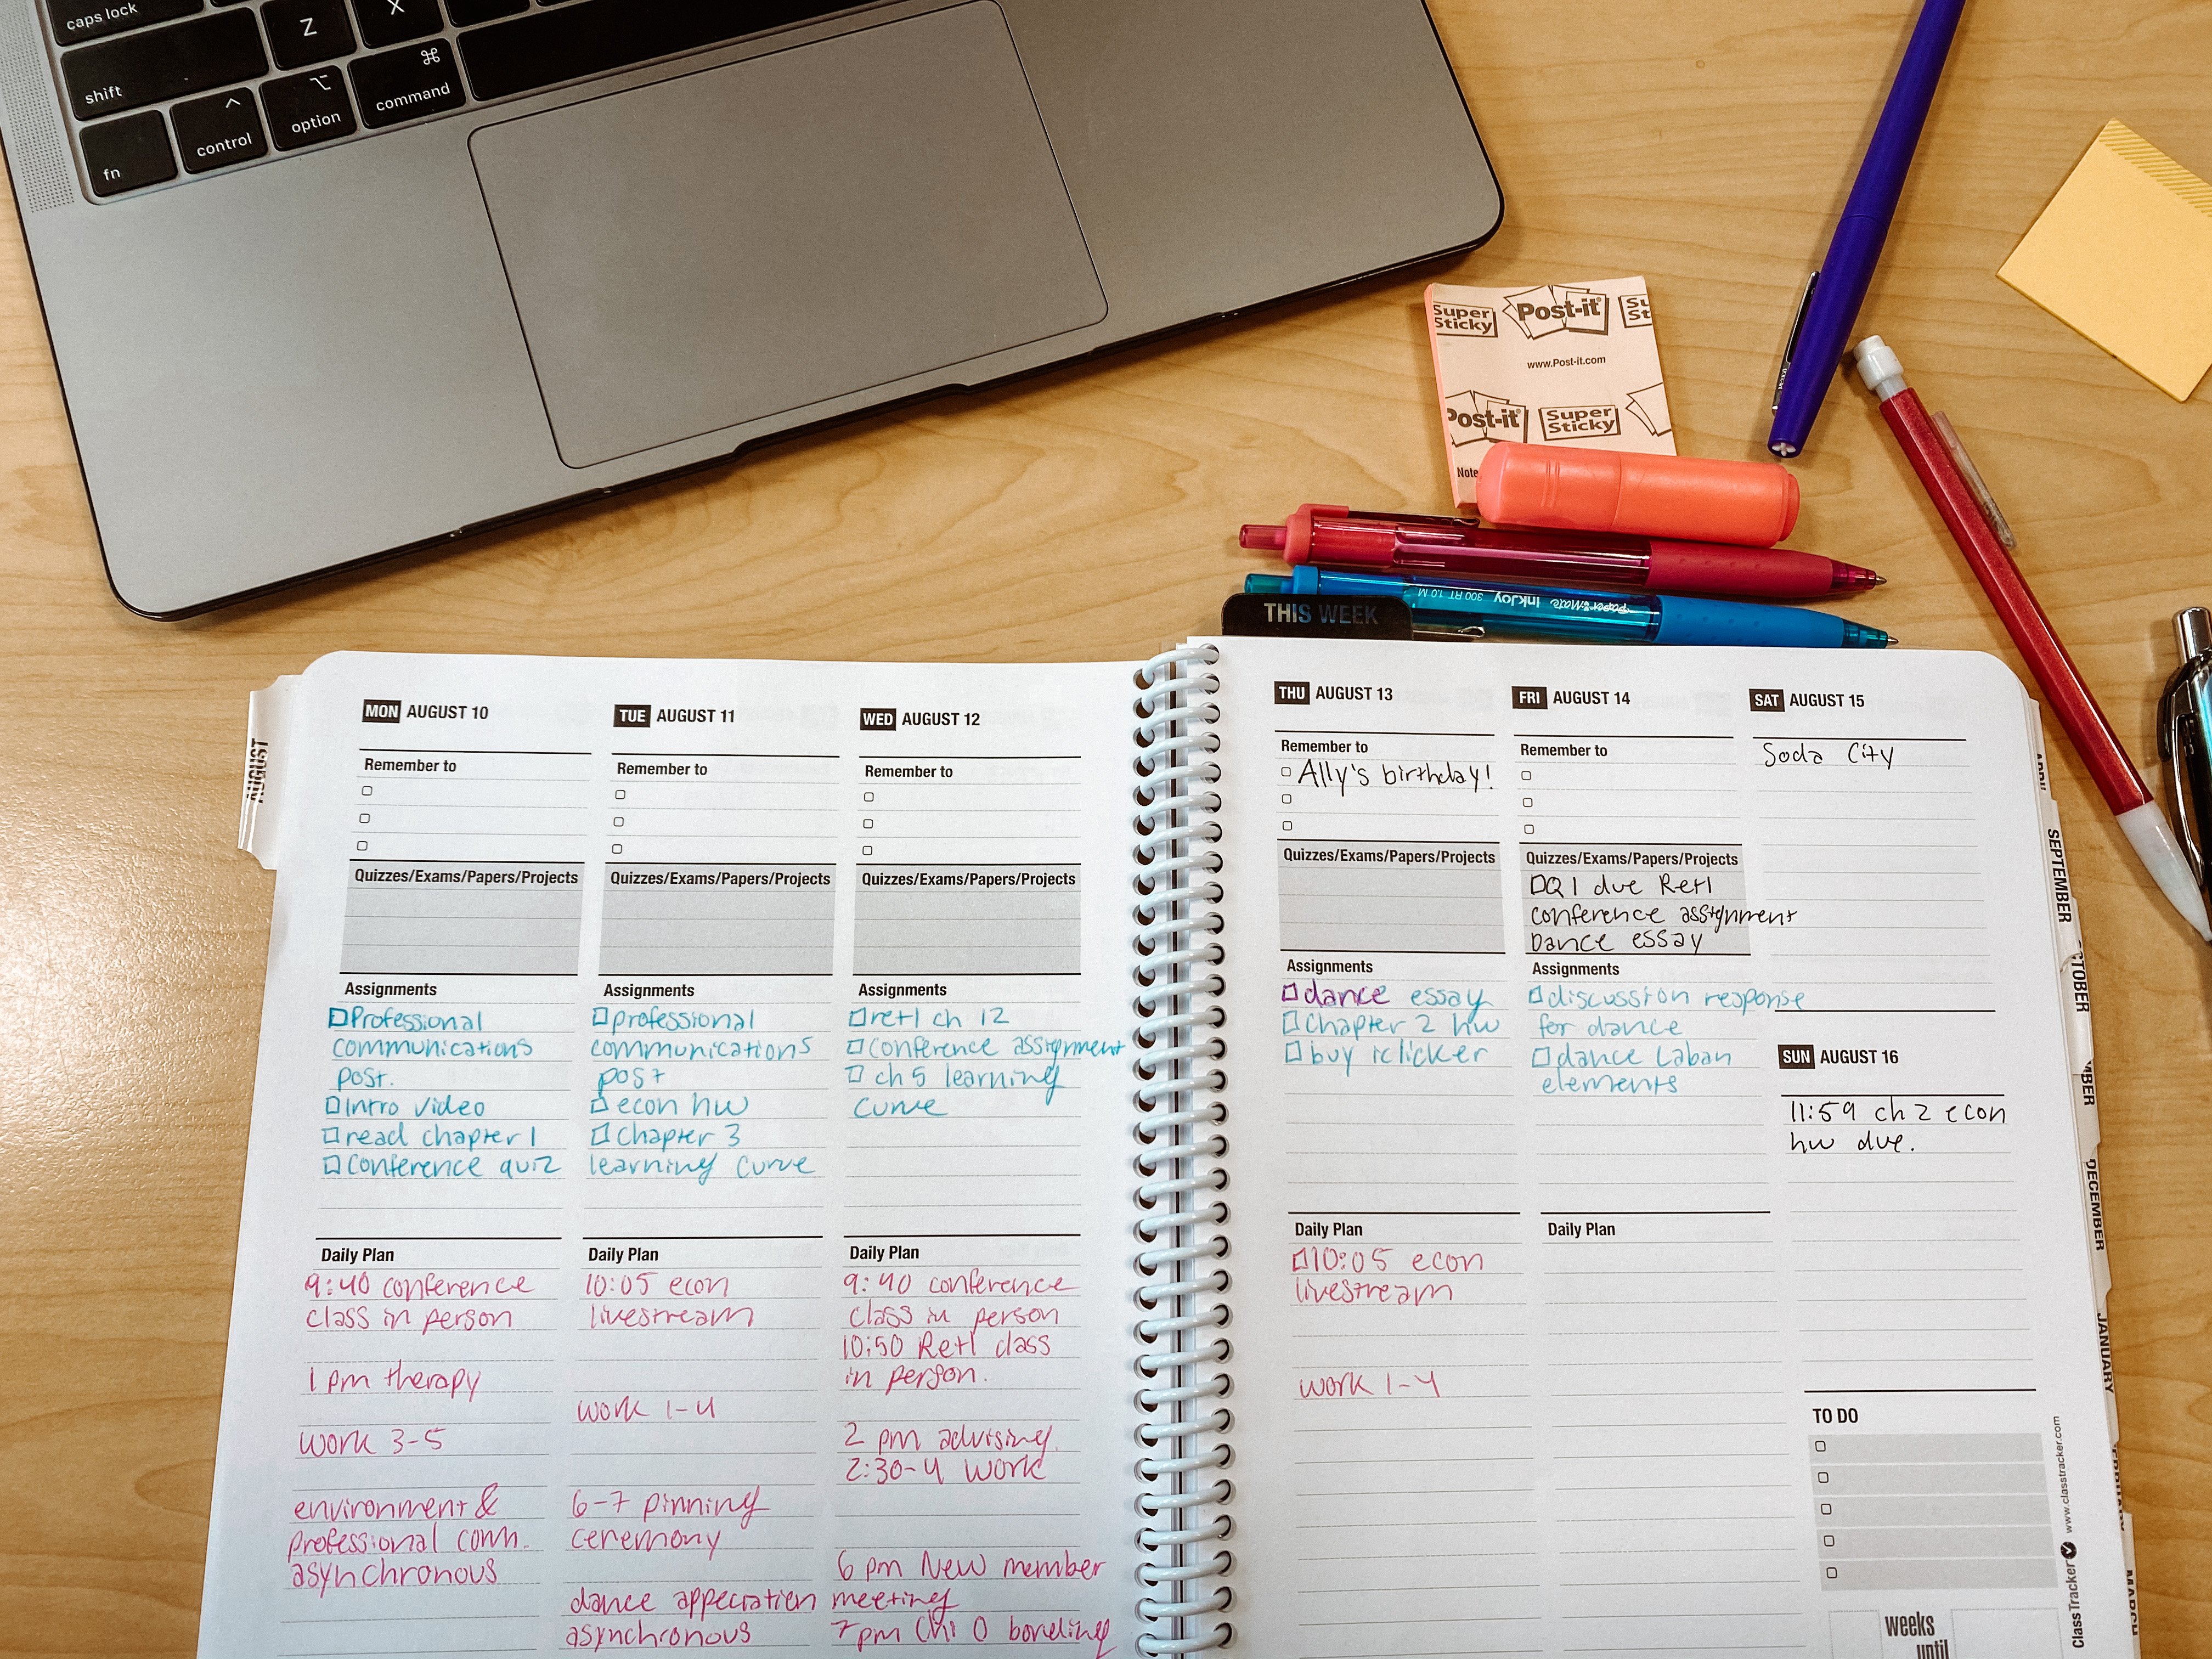 caps lock
Z
X
shift
⌘
command
⌥
option
^
control
fn
Super Sticky
Post-it
www.Post-it.com
Post-it
Super Sticky
Note
PaperMate InkJoy 300 RT 1.0 M
THIS WEEK
AUGUST
MON AUGUST 10
Remember to
Quizzes/Exams/Papers/Projects
Assignments
Professional
communications
post.
Intro video
read chapter 1
Conference quiz
Daily Plan
9:40 conference
class in person
1 pm therapy
work 3-5
environment &
professional comm.
asynchronous
TUE AUGUST 11
Remember to
Quizzes/Exams/Papers/Projects
Assignments
professional
communications
post
econ hw
Chapter 3
learning curve
Daily Plan
10:05 econ
livestream
work 1-4
6-7 pinning
ceremony
dance appecration
asynchronous
WED AUGUST 12
Remember to
Quizzes/Exams/Papers/Projects
Assignments
retl ch 12
Conference assignment
ch 5 learning
curve
Daily Plan
9:40 conference
class in person
10:50 Retl class
in person.
2 pm advising
2:30-4 work
6 pm New member
meeting
7pm Chi O bonding
THU AUGUST 13
Remember to
Ally's birthday!
Quizzes/Exams/Papers/Projects
Assignments
dance essay
Chapter 2 hw
buy iclicker
Daily Plan
10:05 econ
livestream
work 1-4
FRI AUGUST 14
Remember to
Quizzes/Exams/Papers/Projects
DQ 1 due Retl
conference assignment
Dance essay
Assignments
discussion response
for dance
dance Laban
elements
Daily Plan
SAT AUGUST 15
Soda City
SUN AUGUST 16
11:59 ch 2 econ
hw due.
TO DO
weeks
until
ClassTracker www.classtracker.com
SEPTEMBER
DECEMBER
JANUARY
MARCH